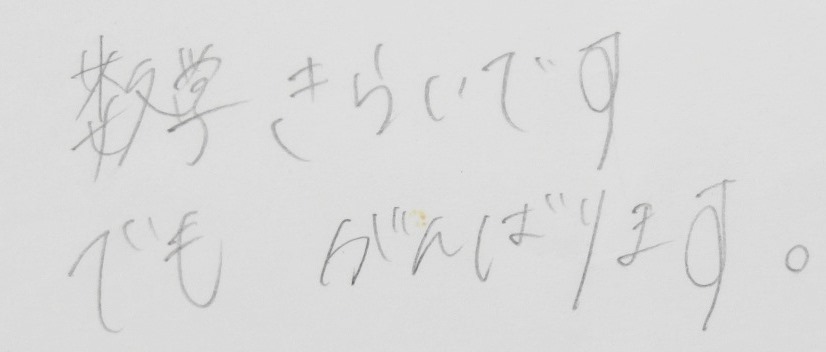 数学きらいです
でも がんばります。